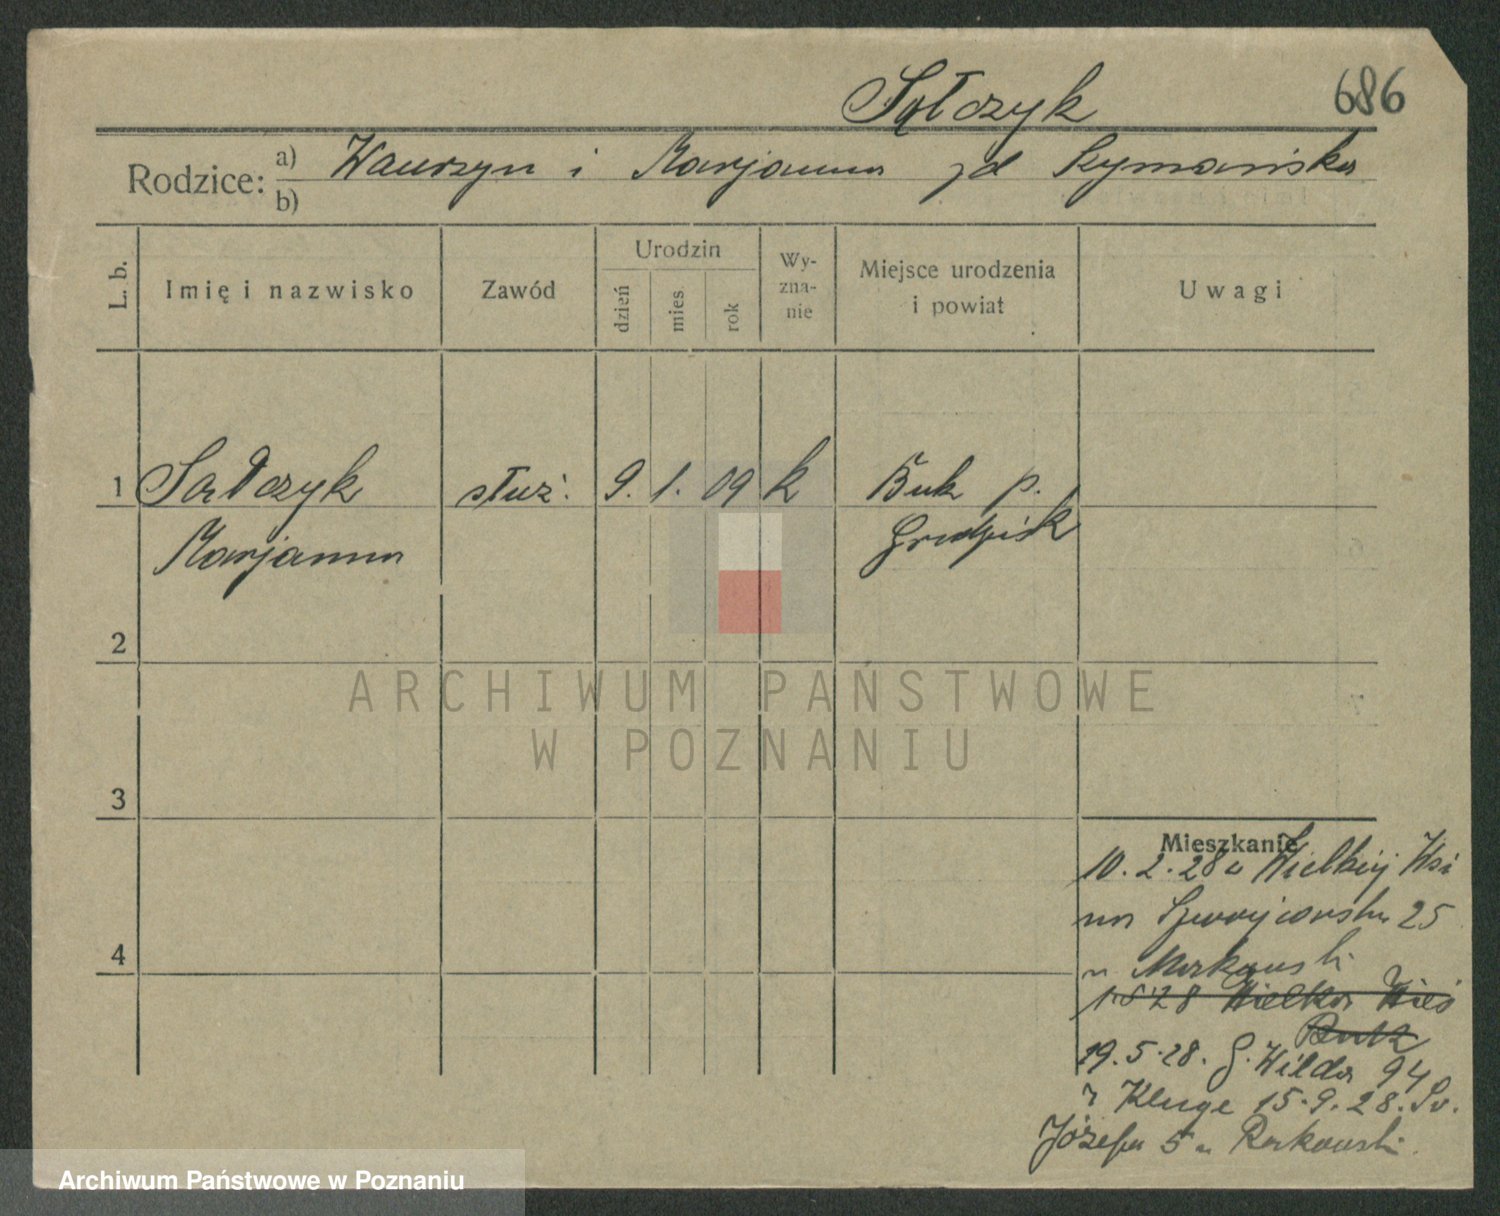 Sołczyk 686
Rodzice: a) Wawrzyn i Marjanna zd Szymańska
b)
L. b. Imię i nazwisko Zawód Urodzin dzień mies rok Wy-zna-nie Miejsce urodzenia i powiat Uwagi
1 Sołczyk służ. 9. 1. 09 k Buk p.
Marjanna Grodzisk
2
3
4
Mieszkanie
10.2.28 z Wielkiej Wsi
25
u
1.5 28 Wielka Wieś
Buk
19.5.28. G. Wilda 94
Kluge 15.9.28. Św.
Józefa 5 u
ARCHIWUM PAŃSTWOWE
W POZNANIU
Archiwum Państwowe w Poznaniu